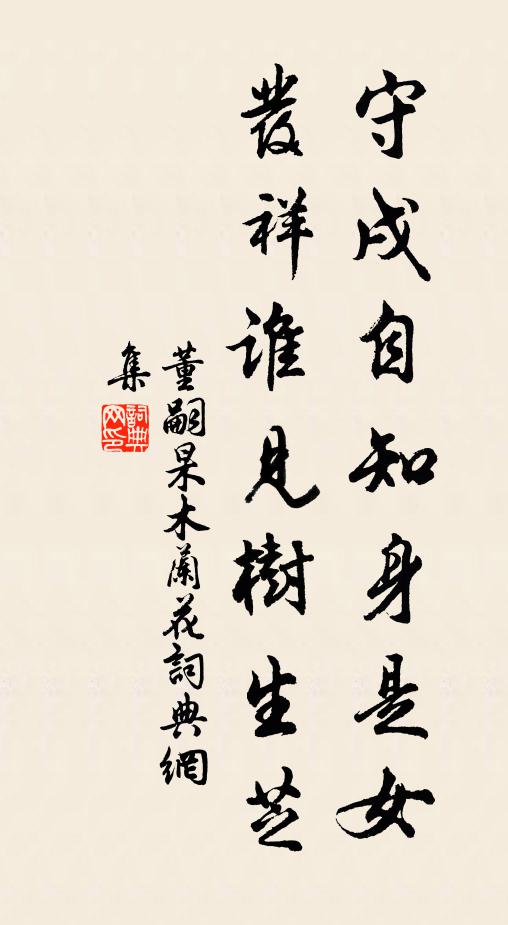 守戍自知身是女
發祥誰見樹生芝
董嗣杲木蘭花詞典網
集
詞典网印